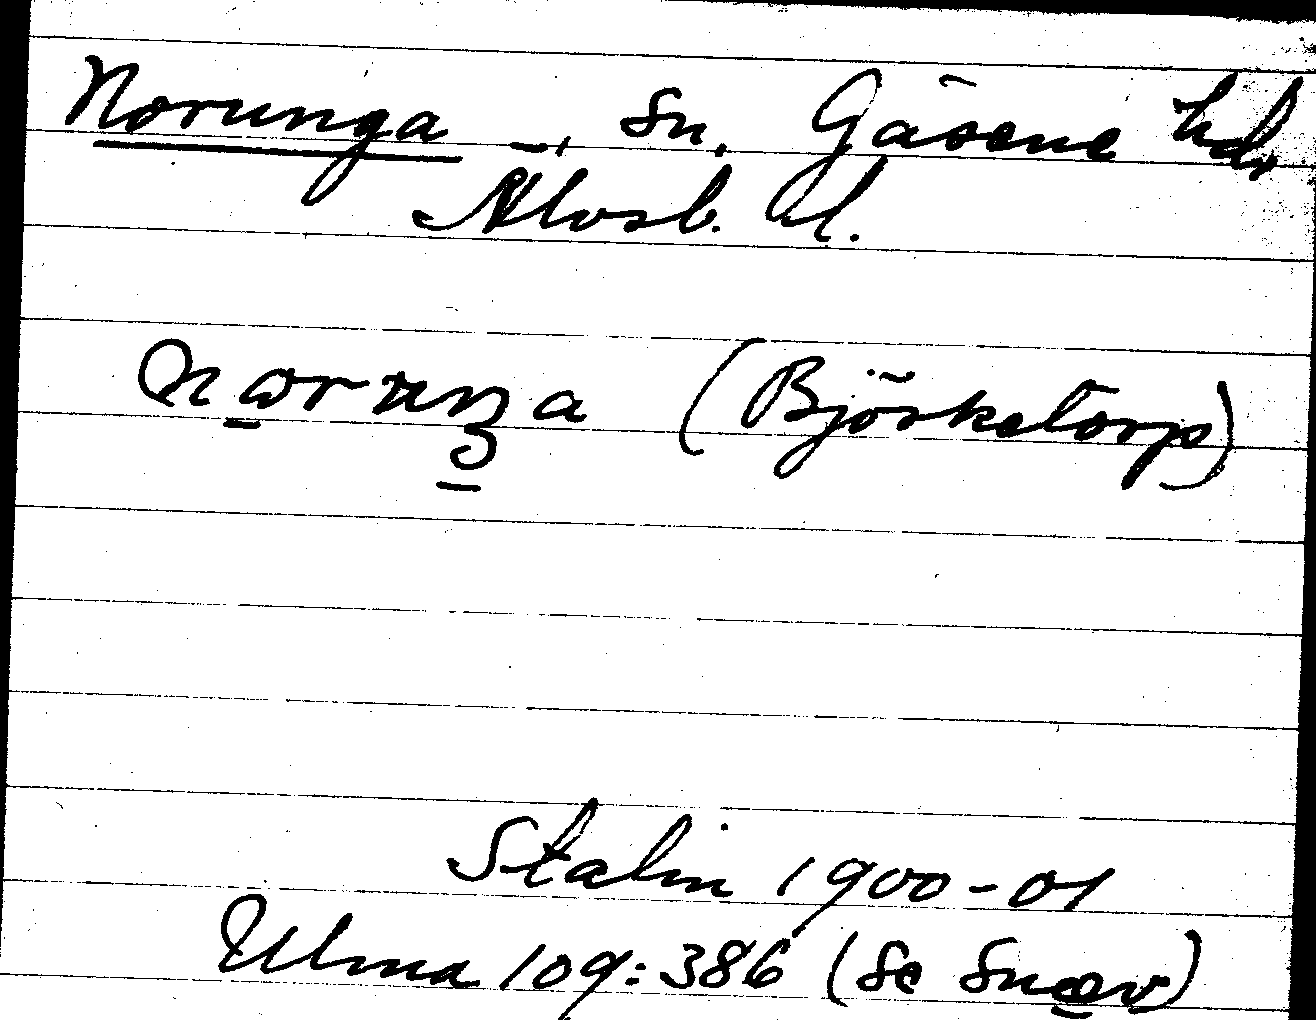 Norunga –, sn, Gäsene hd,
Älvsb. l.
(Björketorp)
Stalin 1900-01
Ulma 109:386 (Se Snæv)